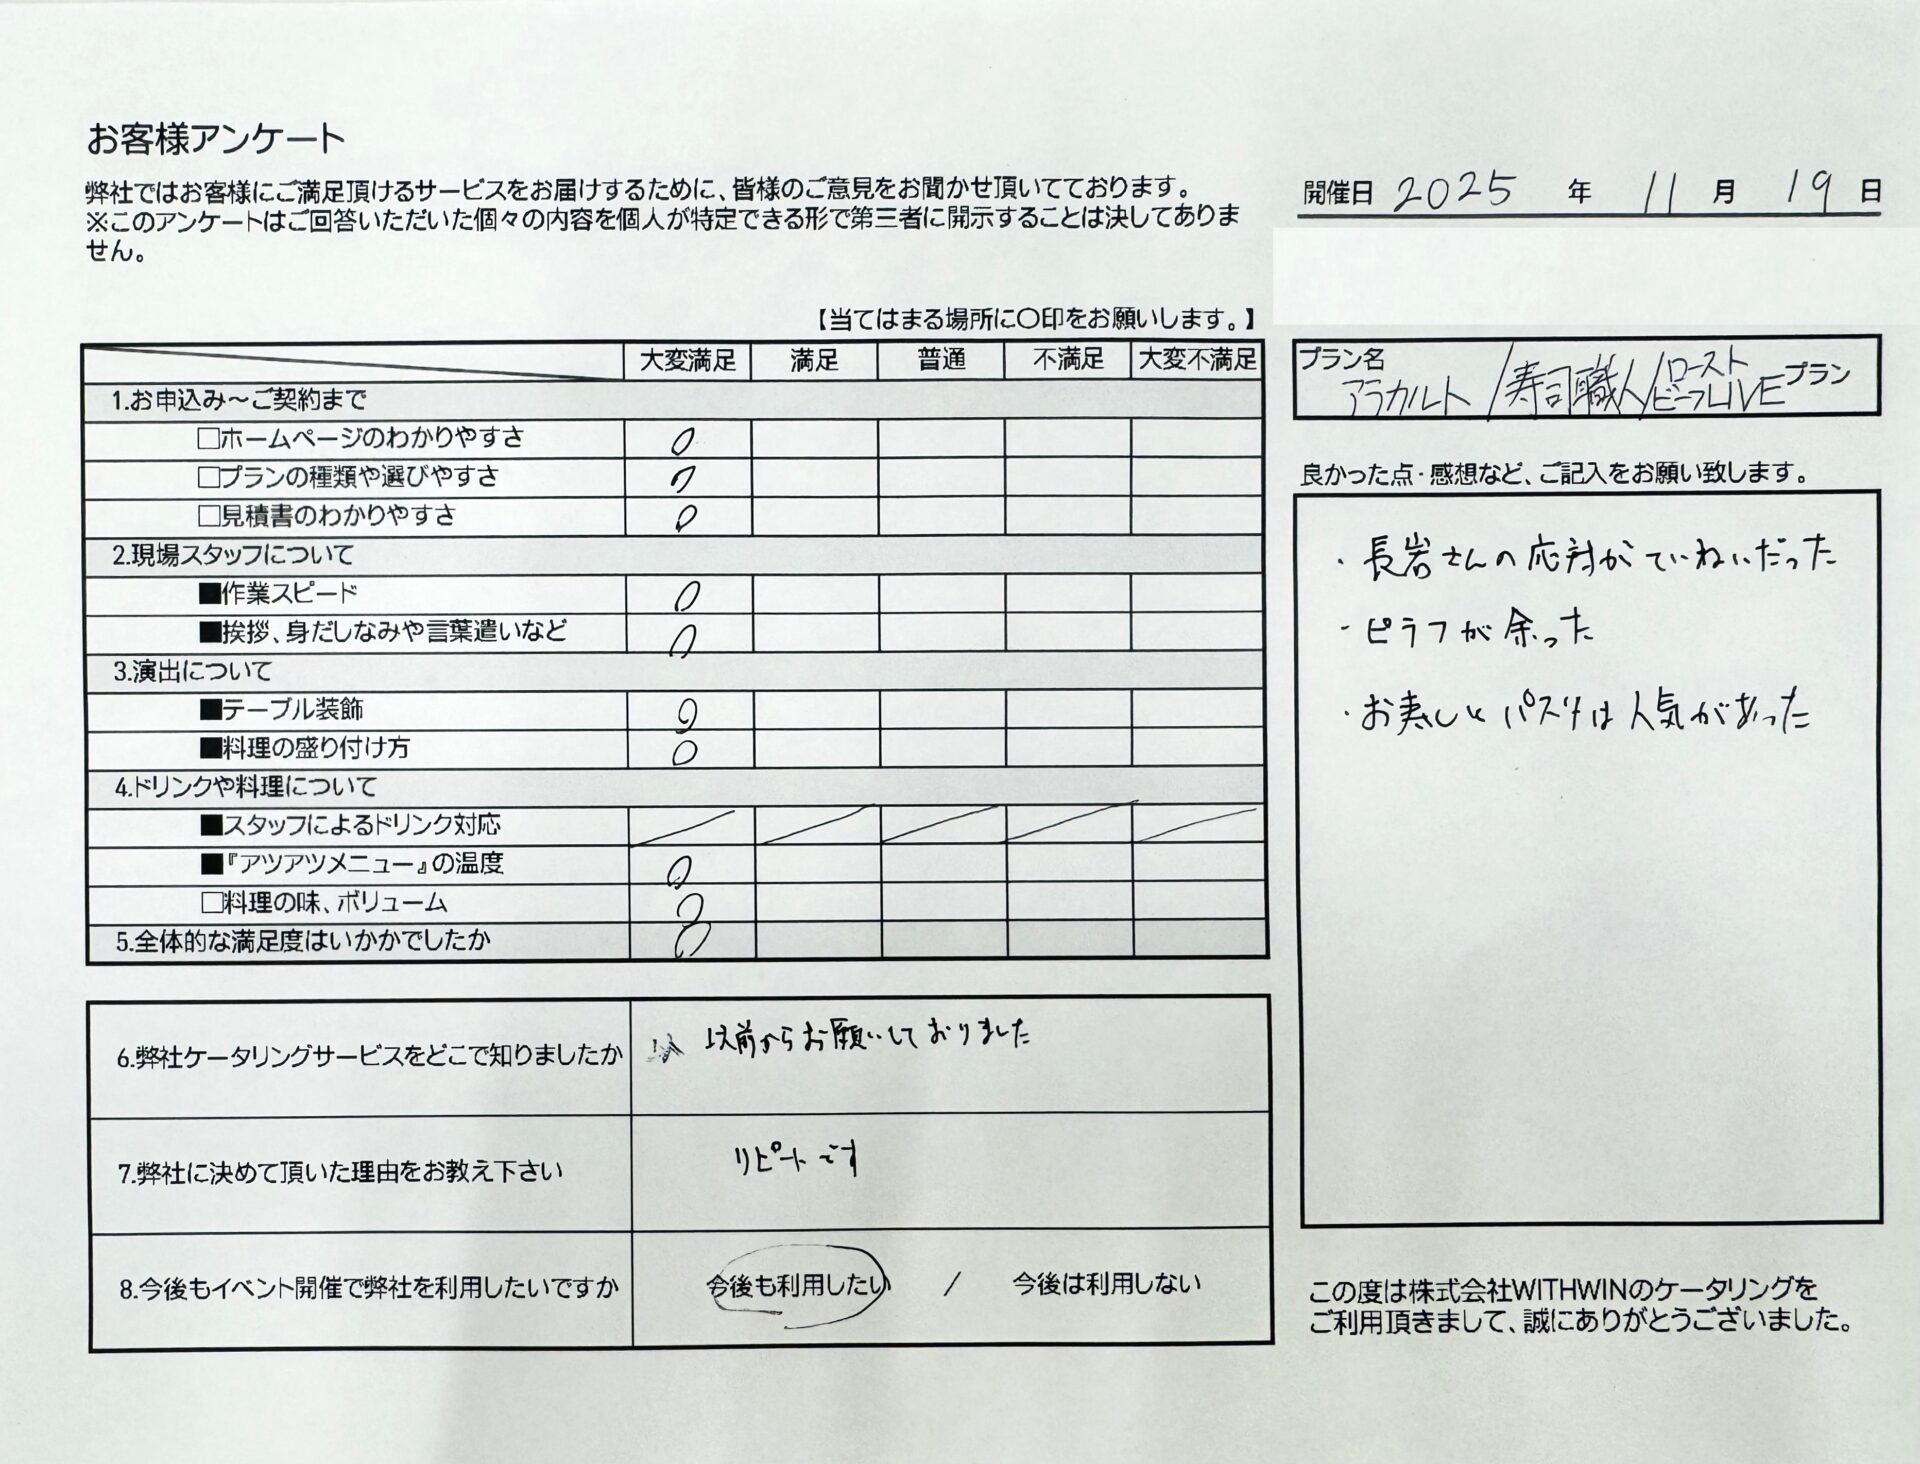 お客様アンケート
弊社ではお客様にご満足頂けるサービスをお届けするために、皆様のご意見をお聞かせ頂いてております。
※このアンケートはご回答いただいた個々の内容を個人が特定できる形で第三者に開示することは決してありま
せん。
開催日 2025 年 11 月 19 日
【当てはまる場所に〇印をお願いします。】
大変満足 満足 普通 不満足 大変不満足
1.お申込み～ご契約まで
□ホームページのわかりやすさ 〇
□プランの種類や選びやすさ 〇
□見積書のわかりやすさ 〇
2.現場スタッフについて
■作業スピード 〇
■挨拶、身だしなみや言葉遣いなど 〇
3.演出について
■テーブル装飾 〇
■料理の盛り付け方 〇
4.ドリンクや料理について
■スタッフによるドリンク対応
■『アツアツメニュー』の温度 〇
□料理の味、ボリューム 〇
5.全体的な満足度はいかかでしたか 〇
6.弊社ケータリングサービスをどこで知りましたか 以前からお願いしておりました
7.弊社に決めて頂いた理由をお教え下さい リピートです
8.今後もイベント開催で弊社を利用したいですか 今後も利用したい / 今後は利用しない
プラン名
アラカルト/寿司職人/ローストビーフLIVEプラン
良かった点・感想など、ご記入をお願い致します。
・長岩さんの応対がていねいだった
・ピラフが余った
・お寿しとパスタは人気があった
この度は株式会社WITHWINのケータリングを
ご利用頂きまして、誠にありがとうございました。